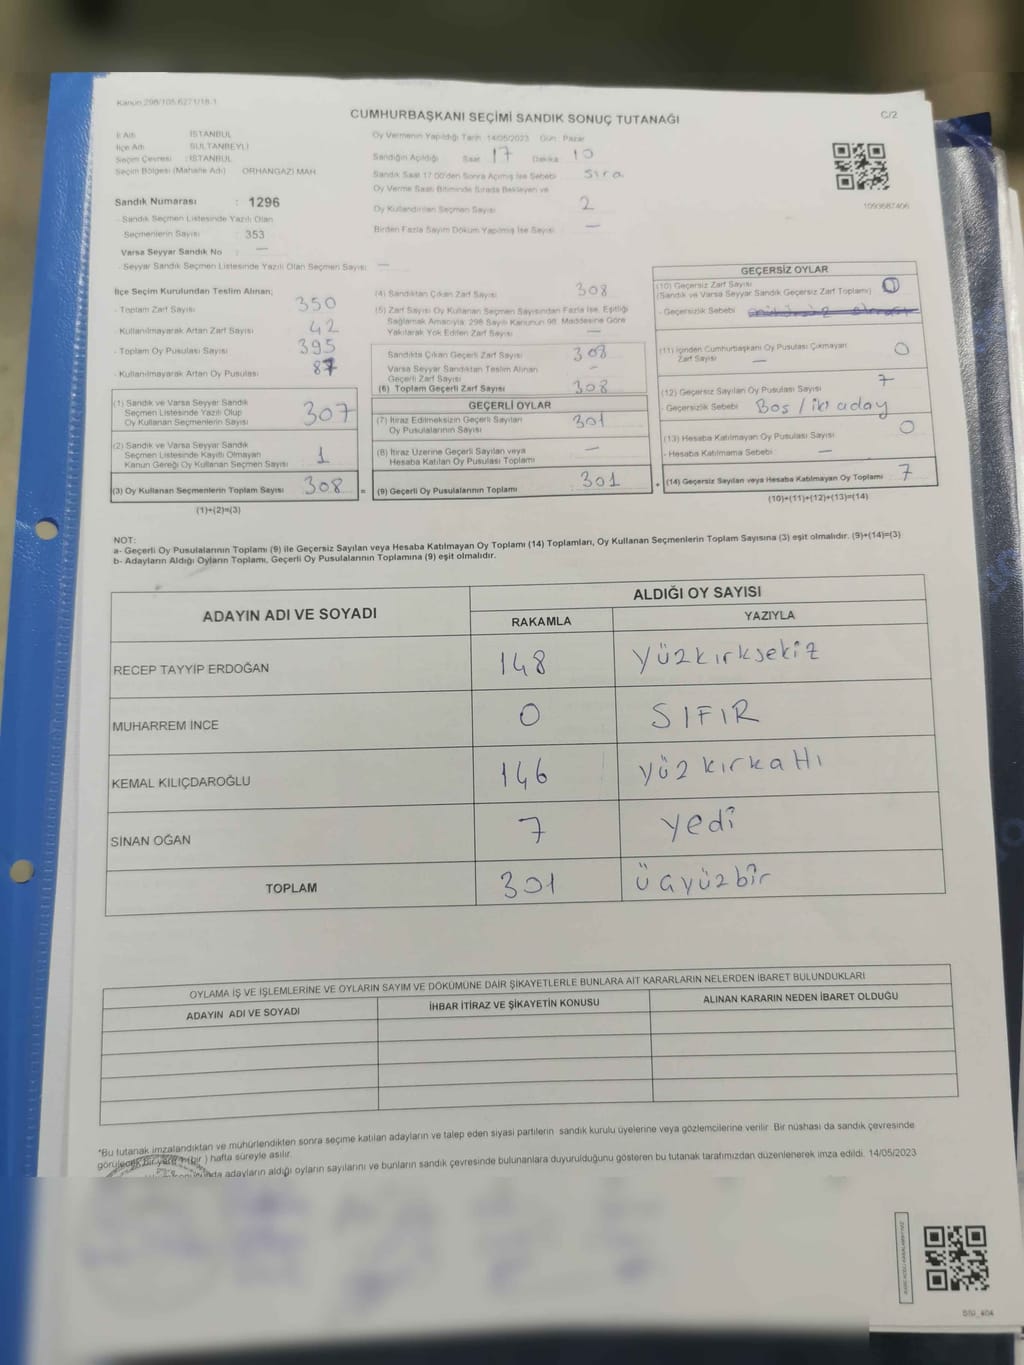 Kanun 298/105,6271/18-1
CUMHURBAŞKANI SEÇİMİ SANDIK SONUÇ TUTANAĞI
C/2
İl Adı : İSTANBUL
İlçe Adı : SULTANBEYLİ
Seçim Çevresi : İSTANBUL
Seçim Bölgesi (Mahalle Adı) ORHANGAZİ MAH.
Sandık Numarası : 1296
- Sandık Seçmen Listesinde Yazılı Olan
Seçmenlerin Sayısı : 353
Varsa Seyyar Sandık No : —
- Seyyar Sandık Seçmen Listesinde Yazılı Olan Seçmen Sayısı: —
Oy Vermenin Yapıldığı Tarih: 14/05/2023 Gün: Pazar
Sandığın Açıldığı Saat 17 Dakika 10
Sandık Saat 17.00'den Sonra Açılmış İse Sebebi Sıra
Oy Verme Saati Bitiminde Sırada Bekleyen ve
Oy Kullandırılan Seçmen Sayısı 2
Birden Fazla Sayım Döküm Yapılmış İse Sayısı —
1093687406
İlçe Seçim Kurulundan Teslim Alınan;
- Toplam Zarf Sayısı 350
- Kullanılmayarak Artan Zarf Sayısı 42
- Toplam Oy Pusulası Sayısı 395
- Kullanılmayarak Artan Oy Pusulası 87
(1) Sandık ve Varsa Seyyar Sandık
Seçmen Listesinde Yazılı Olup
Oy Kullanan Seçmenlerin Sayısı 307
(2) Sandık ve Varsa Seyyar Sandık
Seçmen Listesinde Kayıtlı Olmayan
Kanun Gereği Oy Kullanan Seçmen Sayısı 1
(3) Oy Kullanan Seçmenlerin Toplam Sayısı 308 =
(1)+(2)=(3)
(4) Sandıktan Çıkan Zarf Sayısı 308
(5) Zarf Sayısı Oy Kullanan Seçmen Sayısından Fazla İse, Eşitliği
Sağlamak Amacıyla, 298 Sayılı Kanunun 98. Maddesine Göre
Yakılarak Yok Edilen Zarf Sayısı —
Sandıkta Çıkan Geçerli Zarf Sayısı 308
Varsa Seyyar Sandıktan Teslim Alınan
Geçerli Zarf Sayısı —
(6) Toplam Geçerli Zarf Sayısı 308
GEÇERLİ OYLAR
(7) İtiraz Edilmeksizin Geçerli Sayılan
Oy Pusulalarının Sayısı 301
(8) İtiraz Üzerine Geçerli Sayılan veya
Hesaba Katılan Oy Pusulası Toplamı —
(9) Geçerli Oy Pusulalarının Toplamı 301 +
GEÇERSİZ OYLAR
(10) Geçersiz Zarf Sayısı
(Sandık ve Varsa Seyyar Sandık Geçersiz Zarf Toplamı) 0
- Geçersizlik Sebebi
(11) İçinden Cumhurbaşkanı Oy Pusulası Çıkmayan
Zarf Sayısı — 0
(12) Geçersiz Sayılan Oy Pusulası Sayısı 7
- Geçersizlik Sebebi Boş / iki aday
(13) Hesaba Katılmayan Oy Pusulası Sayısı 0
- Hesaba Katılmama Sebebi —
(14) Geçersiz Sayılan veya Hesaba Katılmayan Oy Toplamı 7
(10)+(11)+(12)+(13)=(14)
NOT:
a- Geçerli Oy Pusulalarının Toplamı (9) ile Geçersiz Sayılan veya Hesaba Katılmayan Oy Toplamı (14) Toplamları, Oy Kullanan Seçmenlerin Toplam Sayısına (3) eşit olmalıdır. (9)+(14)=(3)
b- Adayların Aldığı Oyların Toplamı, Geçerli Oy Pusulalarının Toplamına (9) eşit olmalıdır.
ADAYIN ADI VE SOYADI
ALDIĞI OY SAYISI
RAKAMLA YAZIYLA
RECEP TAYYİP ERDOĞAN 148 Yüzkırksekiz
MUHARREM İNCE 0 SIFIR
KEMAL KILIÇDAROĞLU 146 yüz kırkaltı
SİNAN OĞAN 7 yedi
TOPLAM 301 üçyüzbir
OYLAMA İŞ VE İŞLEMLERİNE VE OYLARIN SAYIM VE DÖKÜMÜNE DAİR ŞİKAYETLERLE BUNLARA AİT KARARLARIN NELERDEN İBARET BULUNDUKLARI
ADAYIN ADI VE SOYADI İHBAR İTİRAZ VE ŞİKAYETİN KONUSU ALINAN KARARIN NEDEN İBARET OLDUĞU
*Bu tutanak imzalandıktan ve mühürlendikten sonra seçime katılan adayların ve talep eden siyasi partilerin sandık kurulu üyelerine veya gözlemcilerine verilir. Bir nüshası da sandık çevresinde
görülecek bir yere 1 (bir ) hafta süreyle asılır.
adayların aldığı oyların sayılarını ve bunların sandık çevresinde bulunanlara duyurulduğunu gösteren bu tutanak tarafımızdan düzenlenerek imza edildi. 14/05/2023